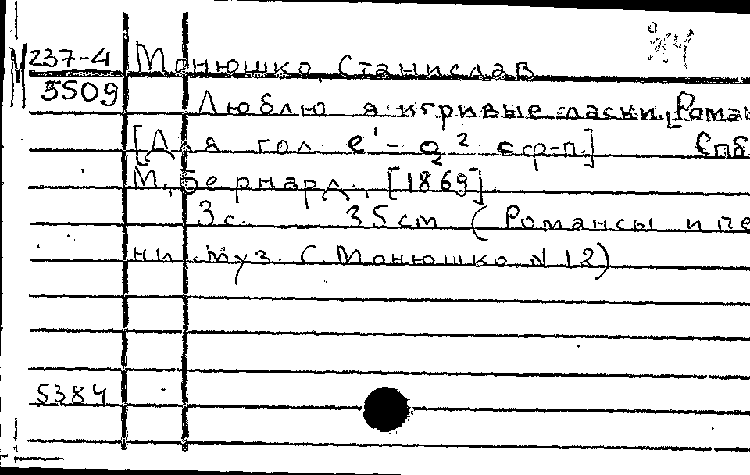 М 237-4 Монюшко Станислав
3509 Люблю я игривые ласки. [Роман
[Для гол e¹-g² с ф-п.] Спб
М. Бернард, [1869].
3с. 35см (Романсы и пе
ни муз. С. Монюшко N 12)
5384